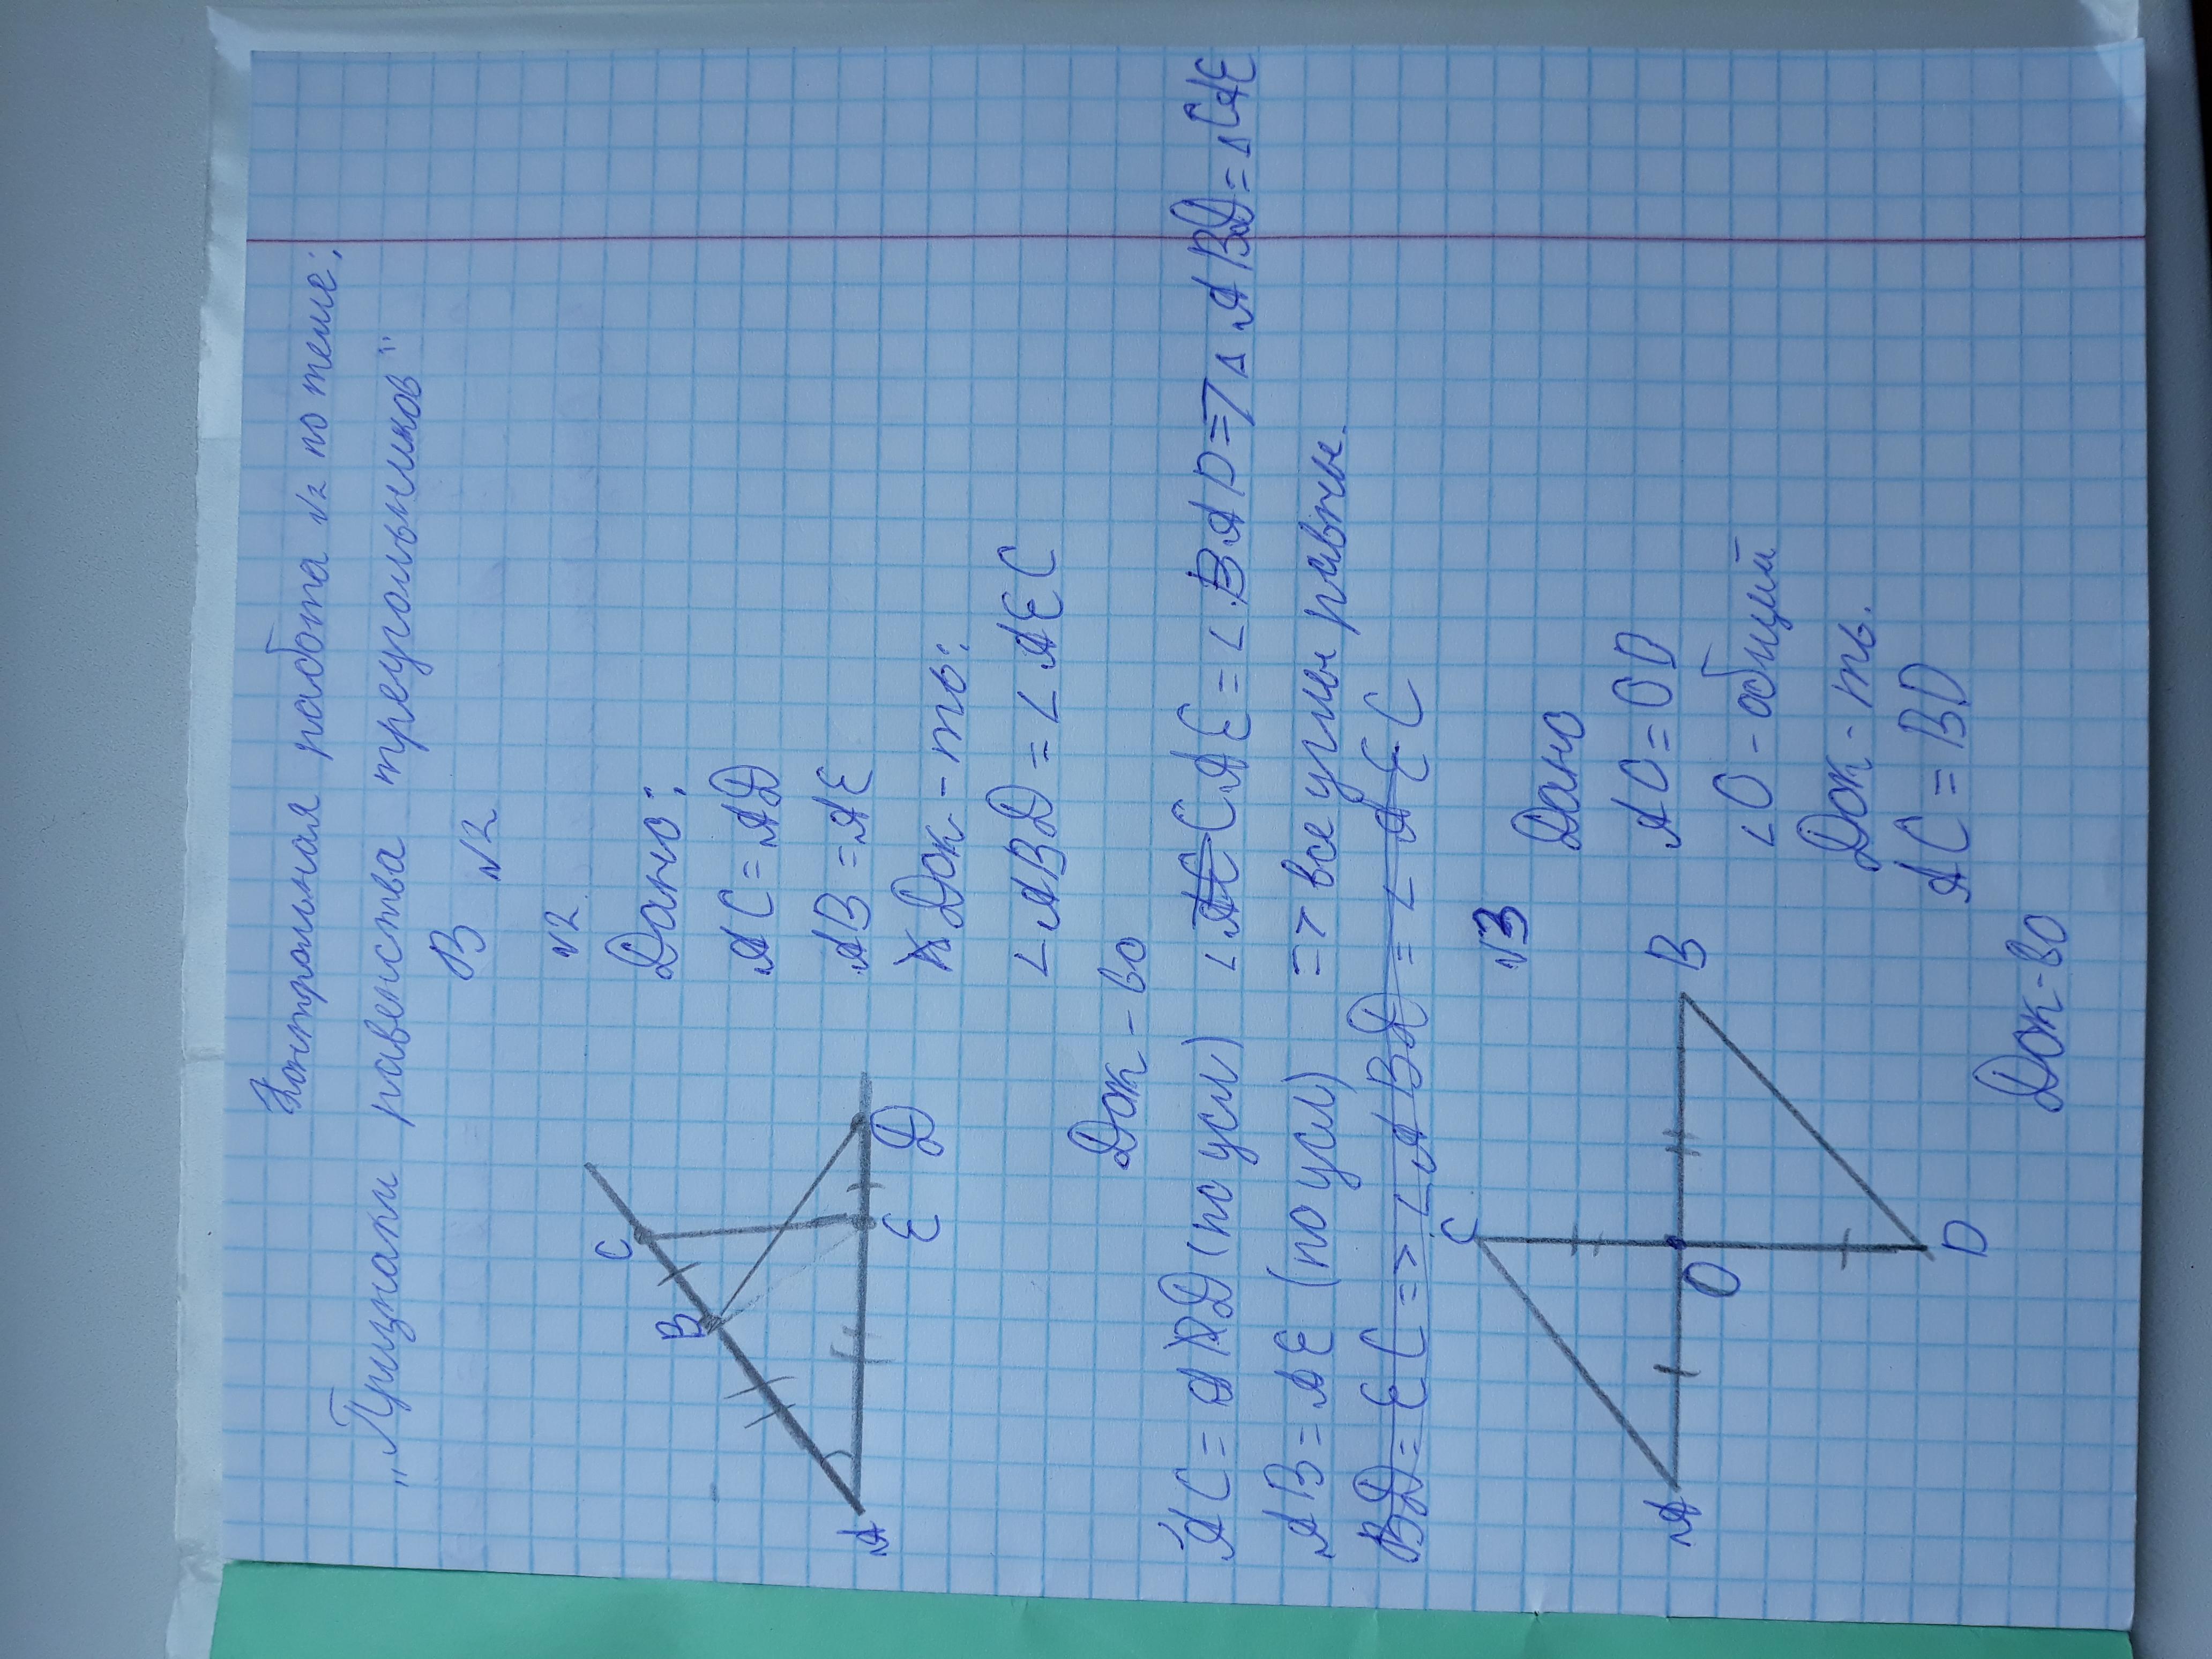 Контрольная работа №2 по теме:
„Признаки равенства треугольников"
В №2
№2
Дано:
AC = AD
AB = AE
Док-ть:
∠ABD = ∠AEC
C
B
A
E
D
Док-во
AC = AD (по усл) ∠CAE = ∠BAD => △ABD = △CAE
AB = AE (по усл) => все углы равны.
BD = EC => ∠ABD = ∠AEC
№3
Дано
AO = OD
∠O - общий
Док-ть.
AC = BD
C
A
O
B
D
Док-во